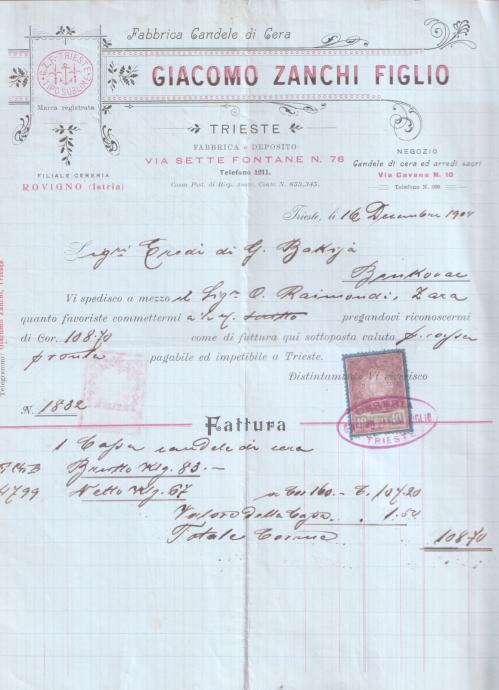 Fabbrica Candele di Cera
GIACOMO ZANCHI FIGLIO
G.Z.F. TRIESTE
TIPO SUBLIME
Marca registrata
TRIESTE
FABBRICA e DEPOSITO
VIA SETTE FONTANE N. 76
Telefono 1211.
Conto Post. di Risp. austr. Conto N. 853,345.
FILIALE CERERIA
ROVIGNO (Istria)
NEGOZIO
Candele di cera ed arredi sacri
Via Cavana N. 10
Telefono N.
Trieste, li 16 Decembre 1904
Sigri Eredi di G. Bakija
Benkovac
Vi spedisco a mezzo il Sigr O. Raimondi, Zara
quanto favoriste commettermi a/m pregandovi riconoscermi
di Cor. 108.70 come di fattura qui sottoposta valuta p. cassa
pronta pagabile ed impetibile a Trieste.
Distintamente Vi riverisco
N. 1832
Telegrammi: Giacomo Zanchi, Trieste
TRIESTE
Fattura
1 Cassa candele di cera
Brutto Klg. 83.—
4799 Netto Klg. 67 a Cor 160.— C. 107.20
Valore della Cassa 1.50
Totale Corone 108.70